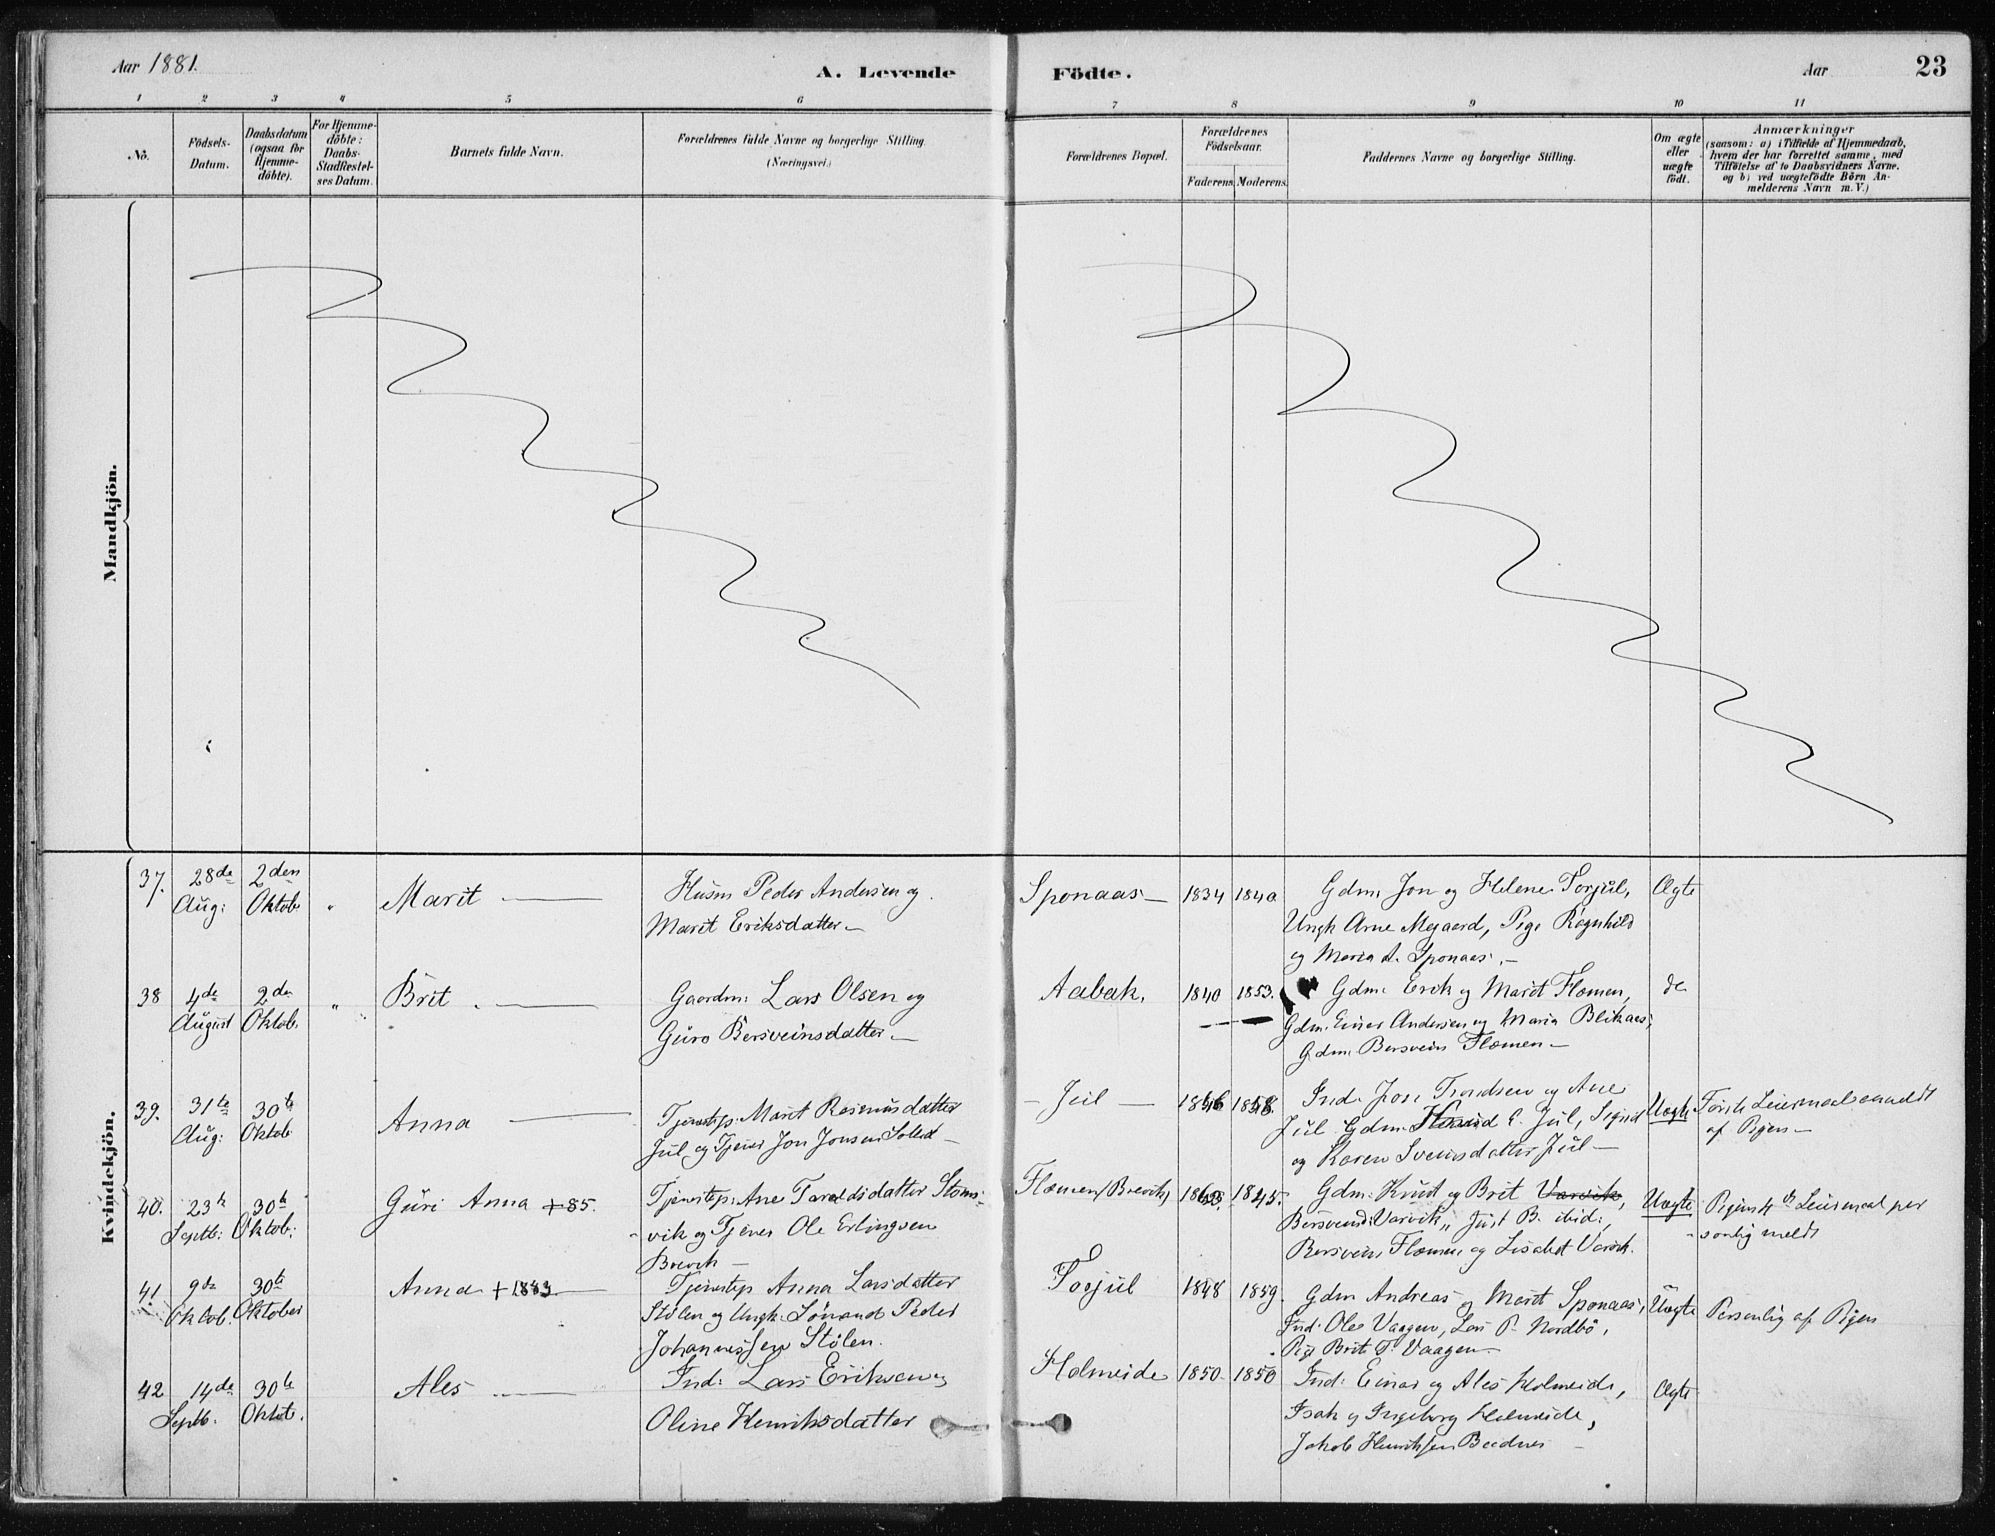 Aar 1881.
A. Levende
Födte.
Aar
23
1 2 3 4 5 6 7 8 9 10 11
No.
Födsels-
Datum.
Daabsdatum
(ogsaa for
Hjemme-
döbte).
For Hjemme-
döbte:
Daabs-
Stadfæstel-
ses Datum.
Barnets fulde Navn.
Forældrenes fulde Navne og borgerlige Stilling
(Næringsvei.)
Forældrenes Bopæl.
Forældrenes
Födselsaar.
Faderens Moderens.
Faddernes Navne og borgerlige Stilling.
Om ægte
eller
uægte
født.
Anmærkninger
(saasom: a) i Tilfælde af Hjemmedaab,
hvem der har forrettet samme, med
Tilföielse af to Daabsvidners Navne.
og b) ved uægtefödte Börn An-
melderens Navn m. V.)
Mandkjön.
Kvindekjön.
37.
28de
Aug:
2den
Oktob.
"
Marit
Husm Peder Andersen og
Marit Eriksdatter
Sponaas
1834
1840
Gdm: Jon og Helene Torjül,
Ungk Arne Megaard, Pige Ragnhild
og Maria A. Sponaas.
Ægte
38
4de
August
2den
Oktob.
"
Brit
Gaardm: Lars Olsen og
Güro Bersveinsdatter
Aabak.
1840
1853.
Gdm: Erik og Marit Flemen,
Gdm. Einer Andersen og Maria Blikaas,
Gdm. Bersvein Flemen
do
39.
31te
Aug:
30te
Oktob
Anna
Tjenestep: Marit Rasmusdatter
Jül og Tjener Jon Jonsen
Jül
Ind. Jon Trondsen og Ane
Jül Gdm. E. Jül,
og Karen Sveinsdatter Jül
Uægte
Første Leiermaal anmeldt
af Pigen
40.
23de
Septb:
30te
Oktob:
Güri Anna + 85.
Tjenestep: Ane Taraldsdatter
vik og Tjener Ole Erlingsen
Brevik
Flemen/Brevik
1845.
Gdm: Knut og Brit Varvik,
Varvik, B. ibid:,
Bersvein Flemen og Lisabet Varvik.
Uægte
Pigens 4de Leiermaal per
sonlig meldt
41
9de
Oktob.
30te
Oktober
Anna + 1883
Tjenestep Anna Larsdatter
Stølen og Ungk: Peder
Johannessen Stølen.
Torjül
1848
1859.
Gdm Andreas og Marit Sponaas,
Ind. Ole Vaagen, Lars P. Nordbö,
Pige Brit T. Vaagen
Uægte
Personlig af Pigen
42
14de
Septb.
30te
Oktob.
Ales
Ind: Lars Eriksen og
Oline Henriksdatter
Holmeide
1850
1850
Ind: Einar og Ales Holmeide,
Isak og Ingeborg Holmeide,
Jakob Henriksen
Ægte